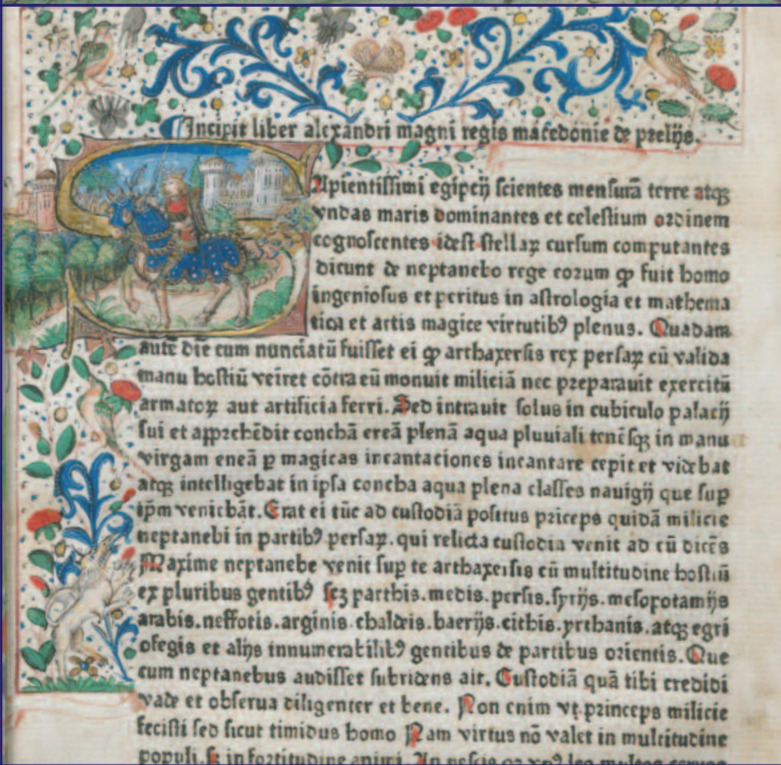 Incipit liber alexandri magni regis macedonie de prelijs.
Apientissimi egipcij scientes mensurā terre atqꝫ
vndas maris dominantes et celestium ordinem
cognoscentes idest stellaꝝ cursum computantes
dicunt de neptanebo rege eorum ꝙ fuit homo
ingeniosus et peritus in astrologia et mathema
tica et artis magice virtutibꝰ plenus. Quadam
autē die cum nunciatū fuisset ei ꝙ arthaxersis rex persaꝝ cū valida
manu hostiū veīret cōtra eū monuit miliciā nec preparauit exercitū
armatoꝝ aut artificia ferri. Sed intrauit solus in cubiculo palacij
sui et apprehēdit conchā ereā plenā aqua pluuiali tenēsqꝫ in manu
virgam eneā ꝑ magicas incantaciones incantare cepit et videbat
atqꝫ intelligebat in ipsa concha aqua plena classes nauigij que suꝑ
ip̄m veniebāt. Erat ei tūc ad custodiā positus prīceps quidā milicie
neptanebi in partibꝰ persaꝝ. qui relicta custodia venit ad eū dicēs
Maxime neptanebe venit suꝑ te arthaxersis cū multitudine hostiū
ex pluribus gentibꝰ scꝫ parthis. medis. persis. syrijs. mesopotamijs
arabis. neffotis. arginis. chaldeis. baerijs. citbis. yrthanis. atqꝫ egri
ofegis et alijs innumerabilibꝰ gentibus de partibus orientis. Que
cum neptanebus audisset subridens air. Custodiā quā tibi credidi
vade et obserua diligenter et bene. Non enim vt princeps milicie
fecisti sed sicut timidus homo Nam virtus nō valet in multitudine
populi. sꝫ in fortitudine animi. An nescis